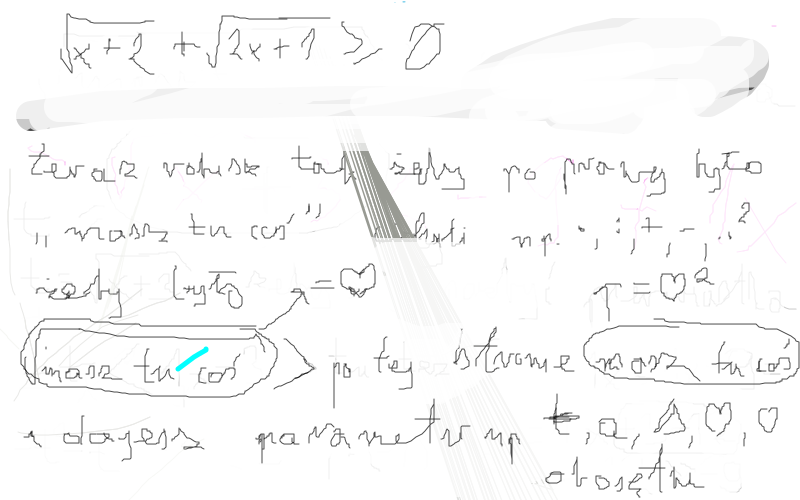 √x + 2 + √2x + 1 ≥ 0
teraz robisz tak żeby po prawej było
„ masz tu coś" np. · , : , + , - , ..²
żeby było = ♡ ↑ = ♡²
masz tu coś > po tej stronie masz tu coś
i dajesz parametr np t, a, △, ♡, ♡